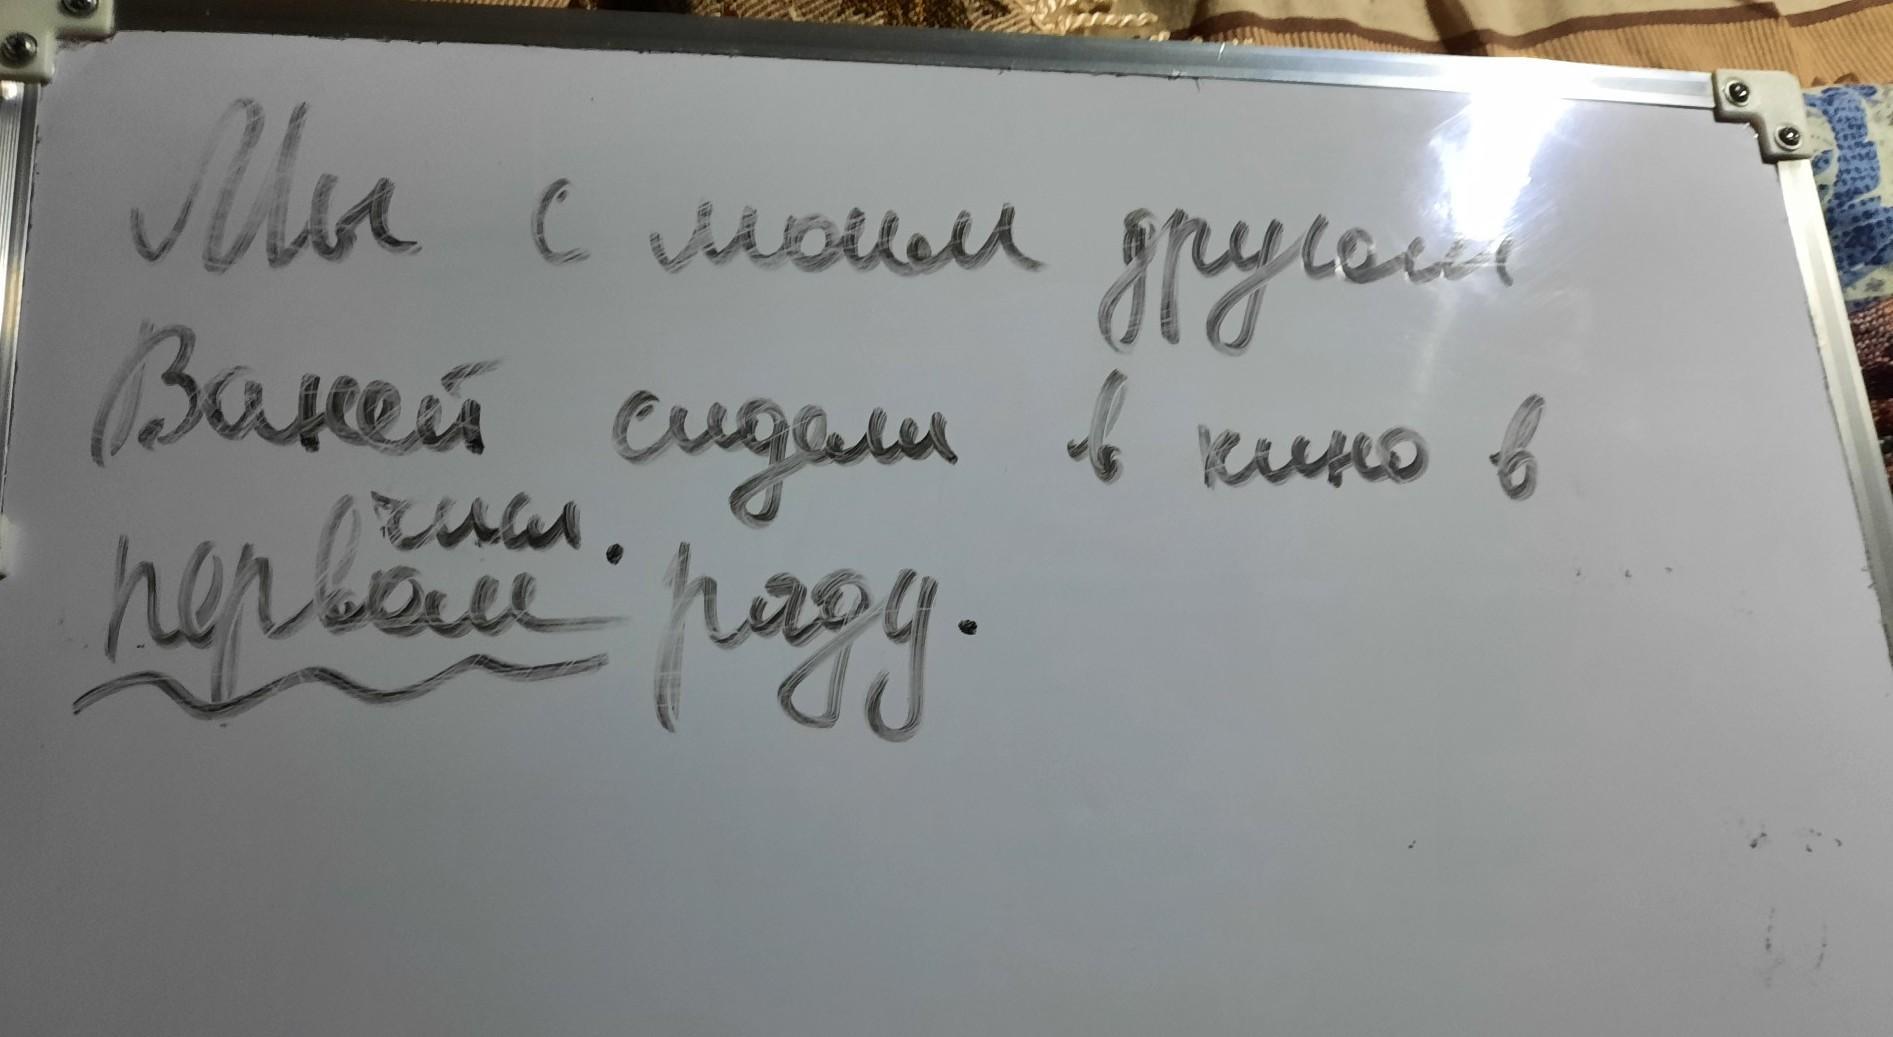 Мы с моим другом
Ваней сидели в кино в
числ.
первом ряду.